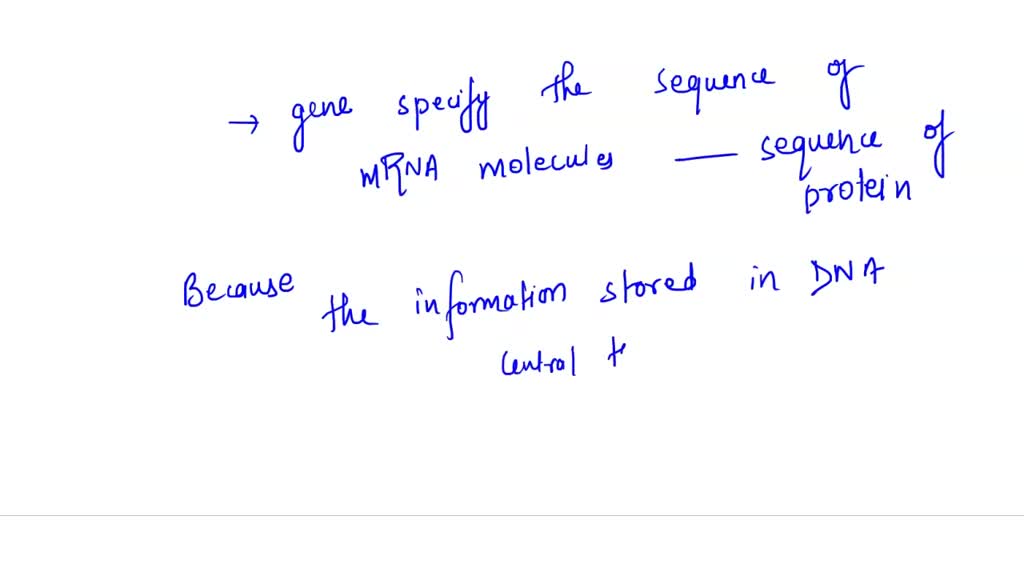 → gene specify the sequence of
mRNA molecules — sequence of
protein
Because the information stored in DNA
central t